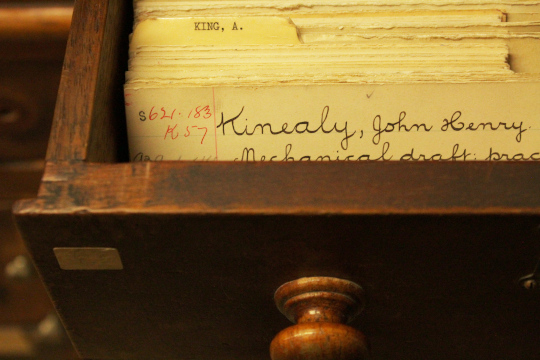 KING, A.
s621.183
K57
Kinealy, John Henry.
Mechanical draft: prac